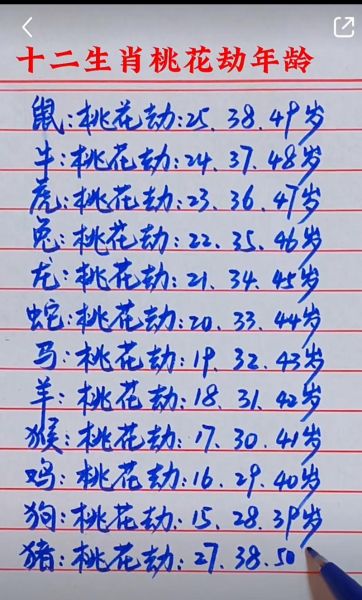 十二生肖桃花劫年龄
鼠:桃花劫:25.38.49岁
牛:桃花劫:24.37.48岁
虎:桃花劫:23.36.47岁
兔:桃花劫:22.35.46岁
龙:桃花劫:21.34.45岁
蛇:桃花劫:20.33.44岁
马:桃花劫:19.32.43岁
羊:桃花劫:18.31.42岁
猴:桃花劫:17.30.41岁
鸡:桃花劫:16.29.40岁
狗:桃花劫:15.28.39岁
猪:桃花劫:27.38.50